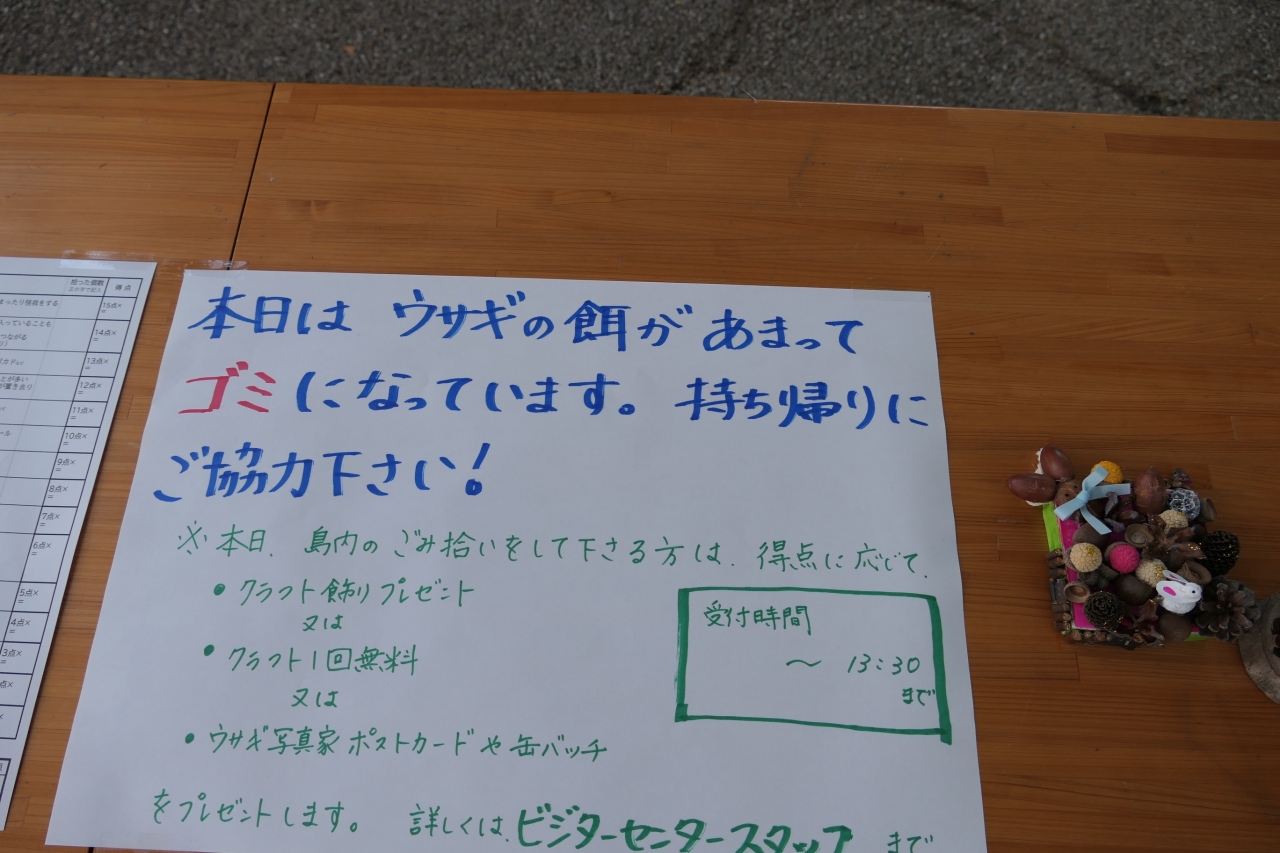 本日は ウサギの餌が あまって
ゴミになっています。持ち帰りに
ご協力下さい!
※本日、島内の ごみ拾いをして下さる方は、得点に応じて、
• クラフト飾りプレゼント
又は
• クラフト1回無料
又は
• ウサギ写真家 ポストカードや缶バッチ
をプレゼントします。 詳しくは、ビジターセンタースタッフ まで
受付時間
～ 13:30
まで
拾った個数
得点
15点×
=
14点×
=
13点×
=
12点×
=
11点×
=
10点×
=
9点×
=
8点×
=
7点×
=
6点×
=
5点×
=
4点×
=
3点×
=